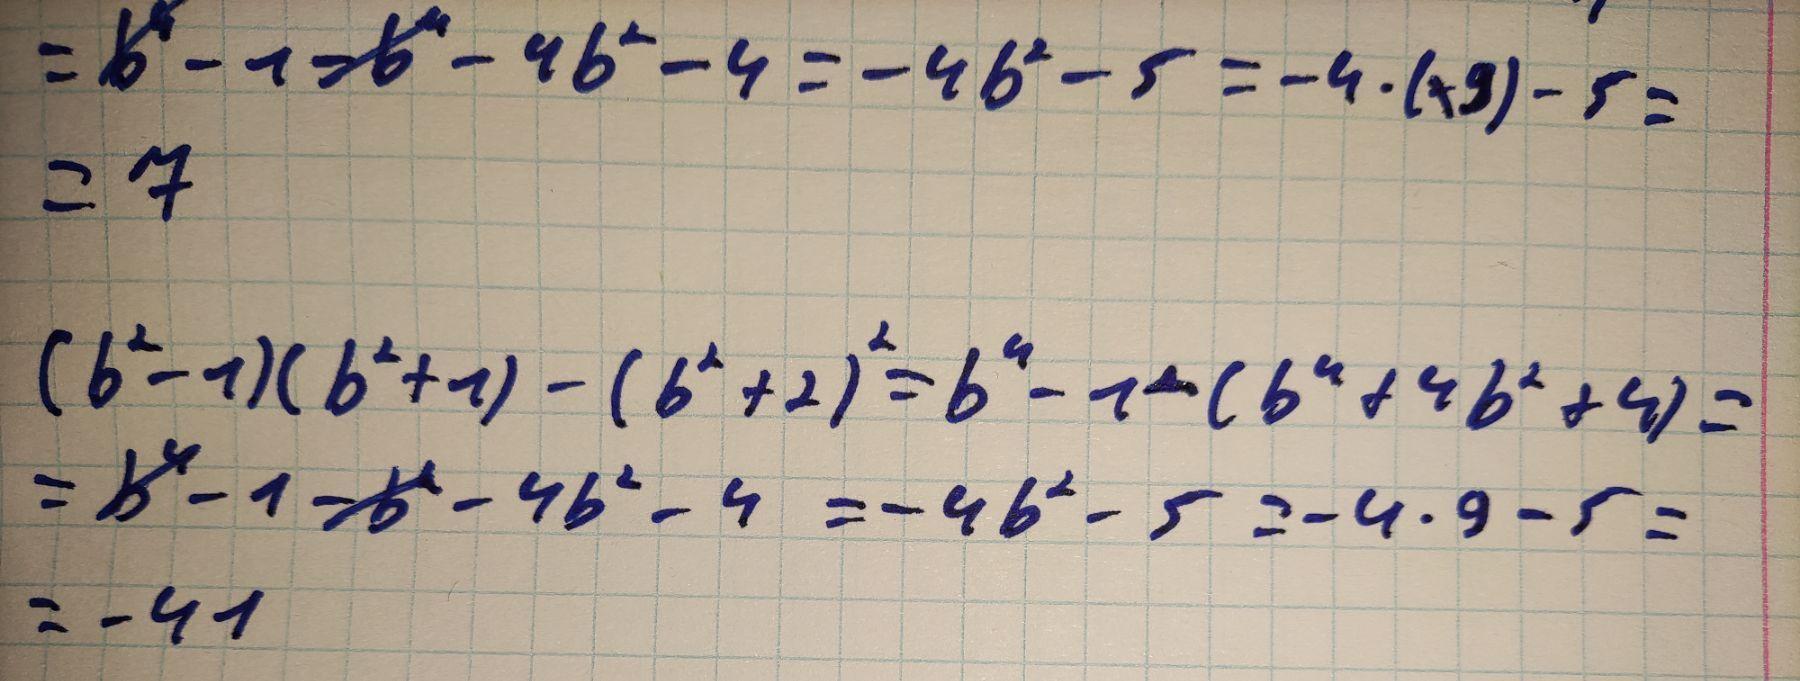 = b⁴ - 1 - b⁴ - 4b² - 4 = - 4b² - 5 = - 4 · (+9) - 5 =
= 7
(b² - 1)(b² + 1) - (b² + 2)² = b⁴ - 1 - (b⁴ + 4b² + 4) =
= b⁴ - 1 - b⁴ - 4b² - 4 = - 4b² - 5 = - 4 · 9 - 5 =
= - 41